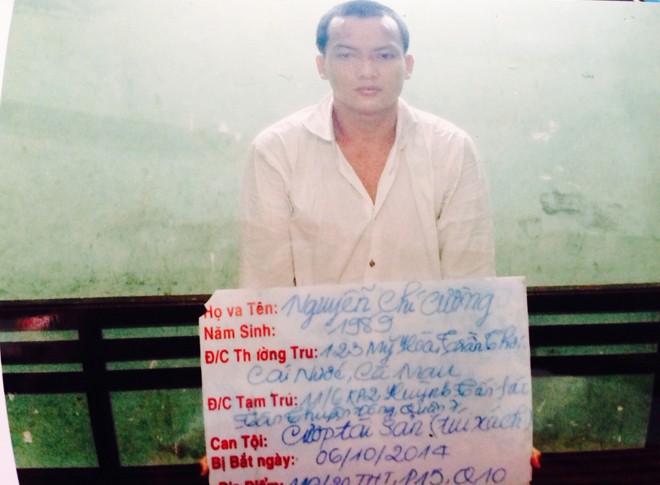 Họ và Tên: Nguyễn Chí Cường
Năm Sinh: 1989
Đ/C Th ờng Trú: 123 Mỹ Hòa, Trần Thới
Cái Nước, Cà Mau
Đ/C Tạm Trú: 11/6 KP2, Huỳnh Tấn Phát
Tân Thuận Đông Quận 7
Can Tội: Cướp tài sản (túi xách)
Bị Bắt ngày: 06/10/2014
Địa Điểm: THT, P15, Q10